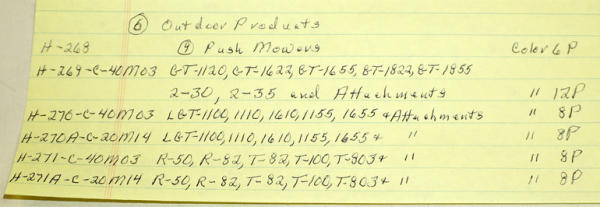 ⑥ Outdoor Products
H-268 ⑨ Push Mowers Color 6P
H-269-C-40M03 GT-1120, GT-1622, GT-1655, GT-1822, GT-1855
2-30, 2-35 and Attachments " 12P
H-270-C-40M03 LGT-1100, 1110, 1610, 1155, 1655 & Attachments " 8P
H-270A-C-20M14 LGT-1100, 1110, 1610, 1155, 1655 & " " 8P
H-271-C-40M03 R-50, R-82, T-82, T-100, T-803 & " " 8P
H-271A-C-20M14 R-50, R-82, T-82, T-100, T-803 & " " 8P